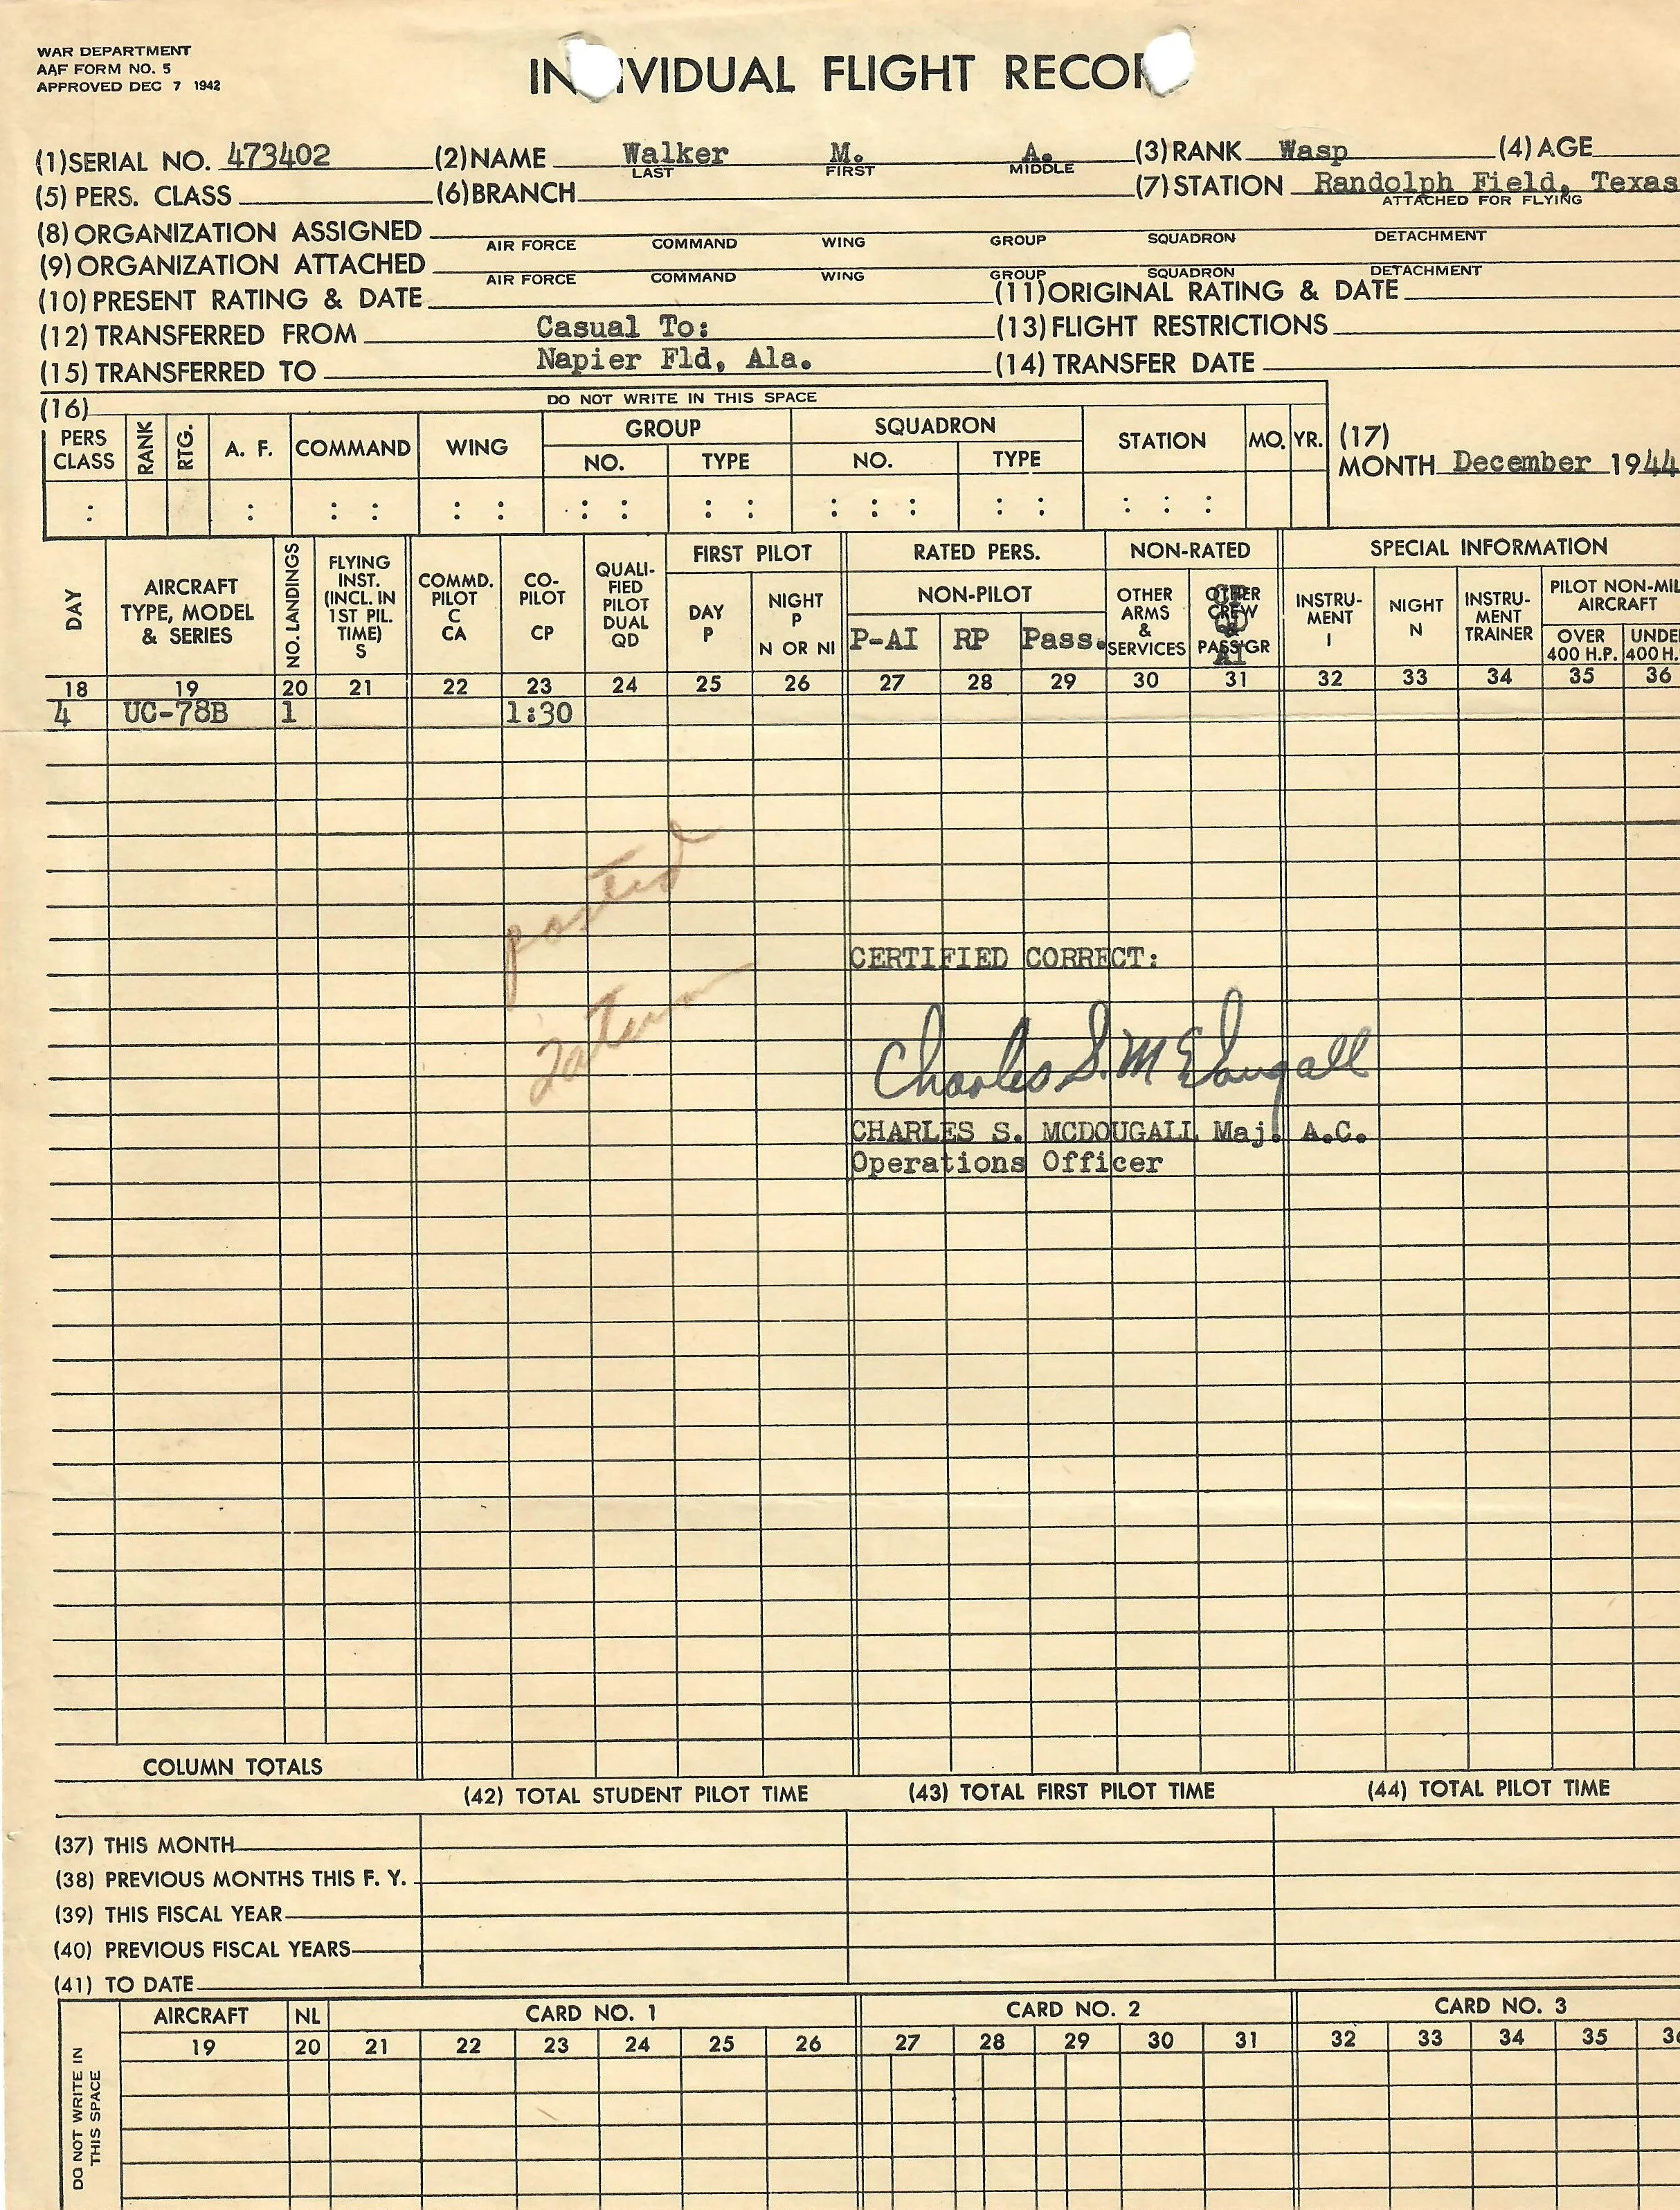 WAR DEPARTMENT
AAF FORM NO. 5
APPROVED DEC 7 1942
IN IVIDUAL FLIGHT RECOR
(1) SERIAL NO. 473402 (2) NAME Walker M. A. (3) RANK Wasp (4) AGE
LAST FIRST MIDDLE
(5) PERS. CLASS (6) BRANCH (7) STATION Randolph Field, Texas
ATTACHED FOR FLYING
(8) ORGANIZATION ASSIGNED
AIR FORCE COMMAND WING GROUP SQUADRON DETACHMENT
(9) ORGANIZATION ATTACHED
AIR FORCE COMMAND WING GROUP SQUADRON DETACHMENT
(10) PRESENT RATING & DATE (11) ORIGINAL RATING & DATE
(12) TRANSFERRED FROM Casual To: (13) FLIGHT RESTRICTIONS
(15) TRANSFERRED TO Napier Fld, Ala. (14) TRANSFER DATE
(16) DO NOT WRITE IN THIS SPACE
PERS CLASS RANK RTG. A. F. COMMAND WING GROUP NO. TYPE SQUADRON NO. TYPE STATION MO. YR.
(17)
MONTH December 1944
DAY AIRCRAFT TYPE, MODEL & SERIES NO. LANDINGS FLYING INST. (INCL. IN 1ST PIL. TIME) S COMMD. PILOT C CA CO-PILOT CP QUALI-FIED PILOT DUAL QD FIRST PILOT DAY P NIGHT P N OR NI RATED PERS. NON-PILOT P-AI RP Pass. NON-RATED OTHER ARMS & SERVICES OTHER CREW & PASS'GR SPECIAL INFORMATION INSTRU-MENT I NIGHT N INSTRU-MENT TRAINER PILOT NON-MIL AIRCRAFT OVER 400 H.P. UNDE 400 H.
18 19 20 21 22 23 24 25 26 27 28 29 30 31 32 33 34 35 36
4 UC-78B 1 1:30
posted
CERTIFIED CORRECT:
Charles S. McDougall
CHARLES S. MCDOUGALL Maj. A.C.
Operations Officer
COLUMN TOTALS
(42) TOTAL STUDENT PILOT TIME (43) TOTAL FIRST PILOT TIME (44) TOTAL PILOT TIME
(37) THIS MONTH
(38) PREVIOUS MONTHS THIS F. Y.
(39) THIS FISCAL YEAR
(40) PREVIOUS FISCAL YEARS
(41) TO DATE
DO NOT WRITE IN THIS SPACE
AIRCRAFT NL CARD NO. 1 CARD NO. 2 CARD NO. 3
19 20 21 22 23 24 25 26 27 28 29 30 31 32 33 34 35 36